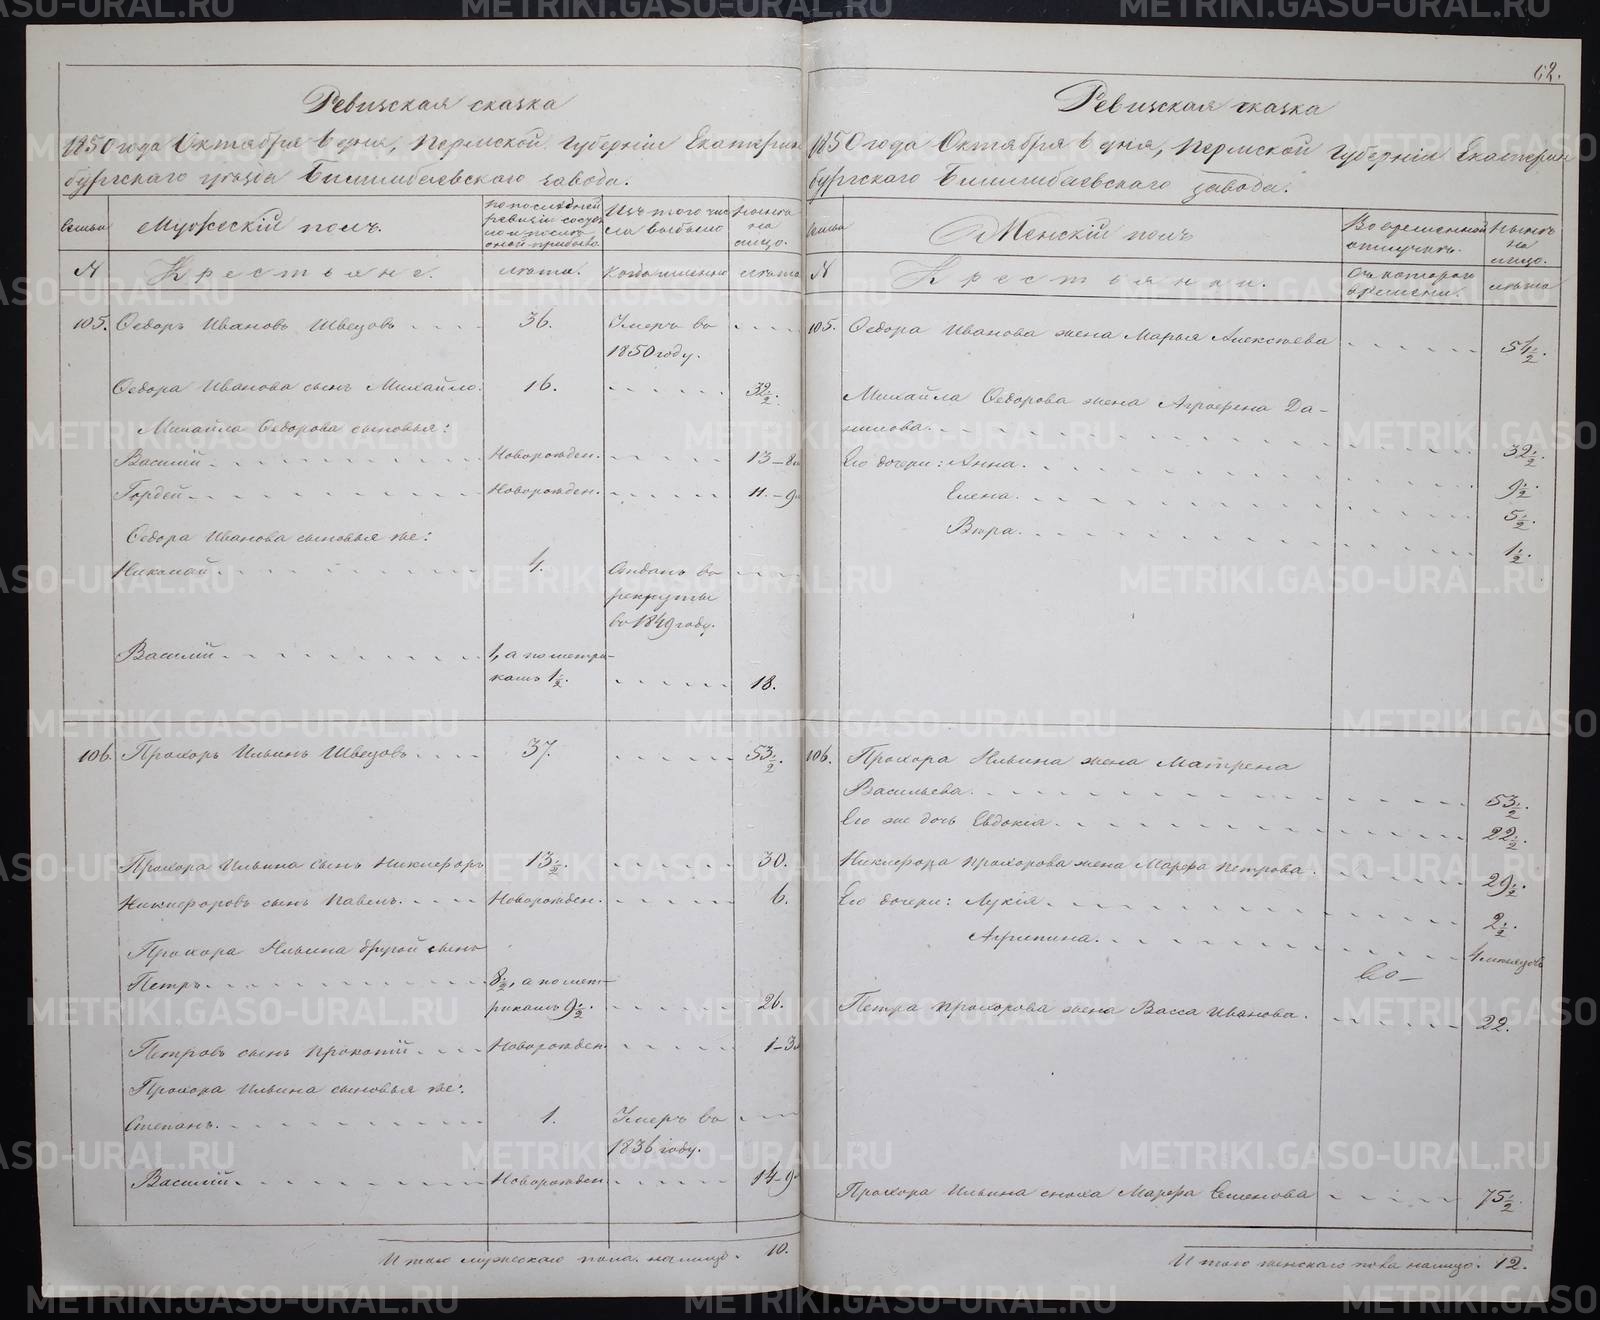 Ревизская сказка
1850 года Октября 6 дня, Пермской Губерніи Екатерин
бургскаго уезда Билимбаевскаго завода.
Семьи
Мужескій полъ.
по последней ревизіи состояло и после оной прибыло.
Изъ того числа выбыло
Ныне на лицо.
№
Крестьяне.
лета.
когда именно
лета
105. Федоръ Ивановъ Швецовъ 36. Умеръ въ
1850 году.
Федора Иванова сынъ Михайло. 16. 32 1/2.
Михайла Федорова сыновья:
Василій Новорожден. 13–8
Гордей Новорожден. 11.–9
Федора Иванова сыновья же:
Николай 4. Отданъ въ
рекруты
въ 1849 году.
Василій 1, а по метри-
камъ 1 1/2. 18.
106. Прохоръ Ильинъ Швецовъ 37. 53 1/2.
Прохора Ильина сынъ Никифоръ 13 1/2. 30.
Никифоровъ сынъ Павелъ. Новорожден. 6.
Прохора Ильина другой сынъ
Петръ 8 1/2, а по мет-
рикамъ 9 1/2. 26.
Петровъ сынъ Прокопій Новорожден. 1–3
Прохора Ильина сыновья же:
Степанъ. 1. Умеръ въ
1836 году.
Василій Новорожден 14–9
Итого мужескаго пола налицо. 10.
62.
Ревизская сказка
1850 года Октября 6 дня, Пермской Губерніи Екатерин
бургскаго Билимбаевскаго завода.
Семьи
Женскій полъ
Во временной отлучке.
Ныне на лицо.
№
Крестьянки.
Съ котораго времени.
лета
105. Федора Иванова жена Марья Алексеева 54 1/2.
Михайла Федорова жена Аграфена Да-
нилова. 32 1/2.
Его дочери: Анна. 9 1/2.
Елена. 5 1/2.
Вера. 1 1/2.
106. Прохора Ильина жена Матрена
Васильева. 53 1/2.
Его же дочь Евдокія 22 1/2.
Никифора Прохорова жена Марфа Петрова. 29 1/2.
Его дочери: Лукія 2 1/2.
Агрипина. 4 месяцовъ
Петра Прохорова жена Васса Иванова. 22.
Прохора Ильина сноха Марфа Семенова 75 1/2.
Итого женскаго пола налицо. 12.
METRIKI.GASO-URAL.RU